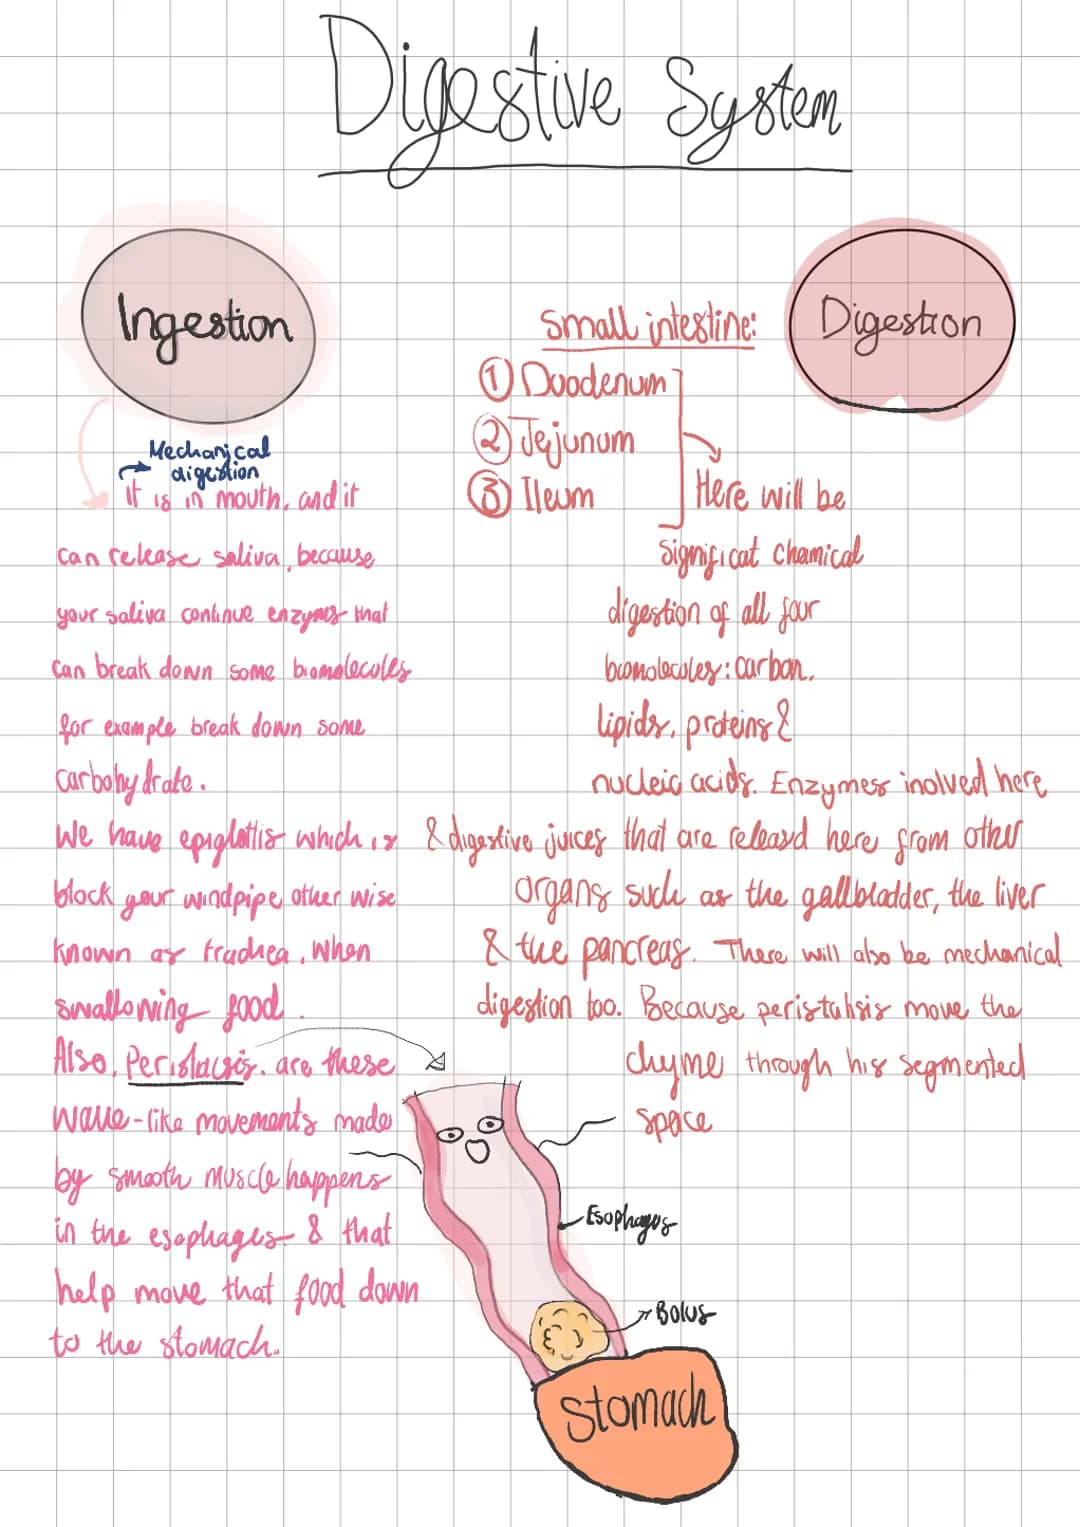 Digestive System
Ingestion
Mechanical
digestion
it is in mouth, and it
can release saliva, because
your saliva continue enzymes that
can break down some biomolecules
for example break down some
carbohydrate.
We have epiglottis which is
block your windpipe other wise
known as trachea, when
swallowing food.
Also, Peristacsis. are these
wave-like movements made
by smooth muscle happens
in the esophages & that
help move that food down
to the stomach.
Digestion
Small intestine:
① Duodenum
② Jejunum
③ Ileum
Here will be
significat chamical
digestion of all four
biomolecules: carbon,
lipids, proteins &
nucleic acids. Enzymes inolved here
& digestive juices that are releasd here from other
organs such as the gallbladder, the liver
& the pancreas. There will also be mechanical
digestion too. Because peristalsis move the
chyme through his segmented
space
Esophagus
Bolus
Stomach